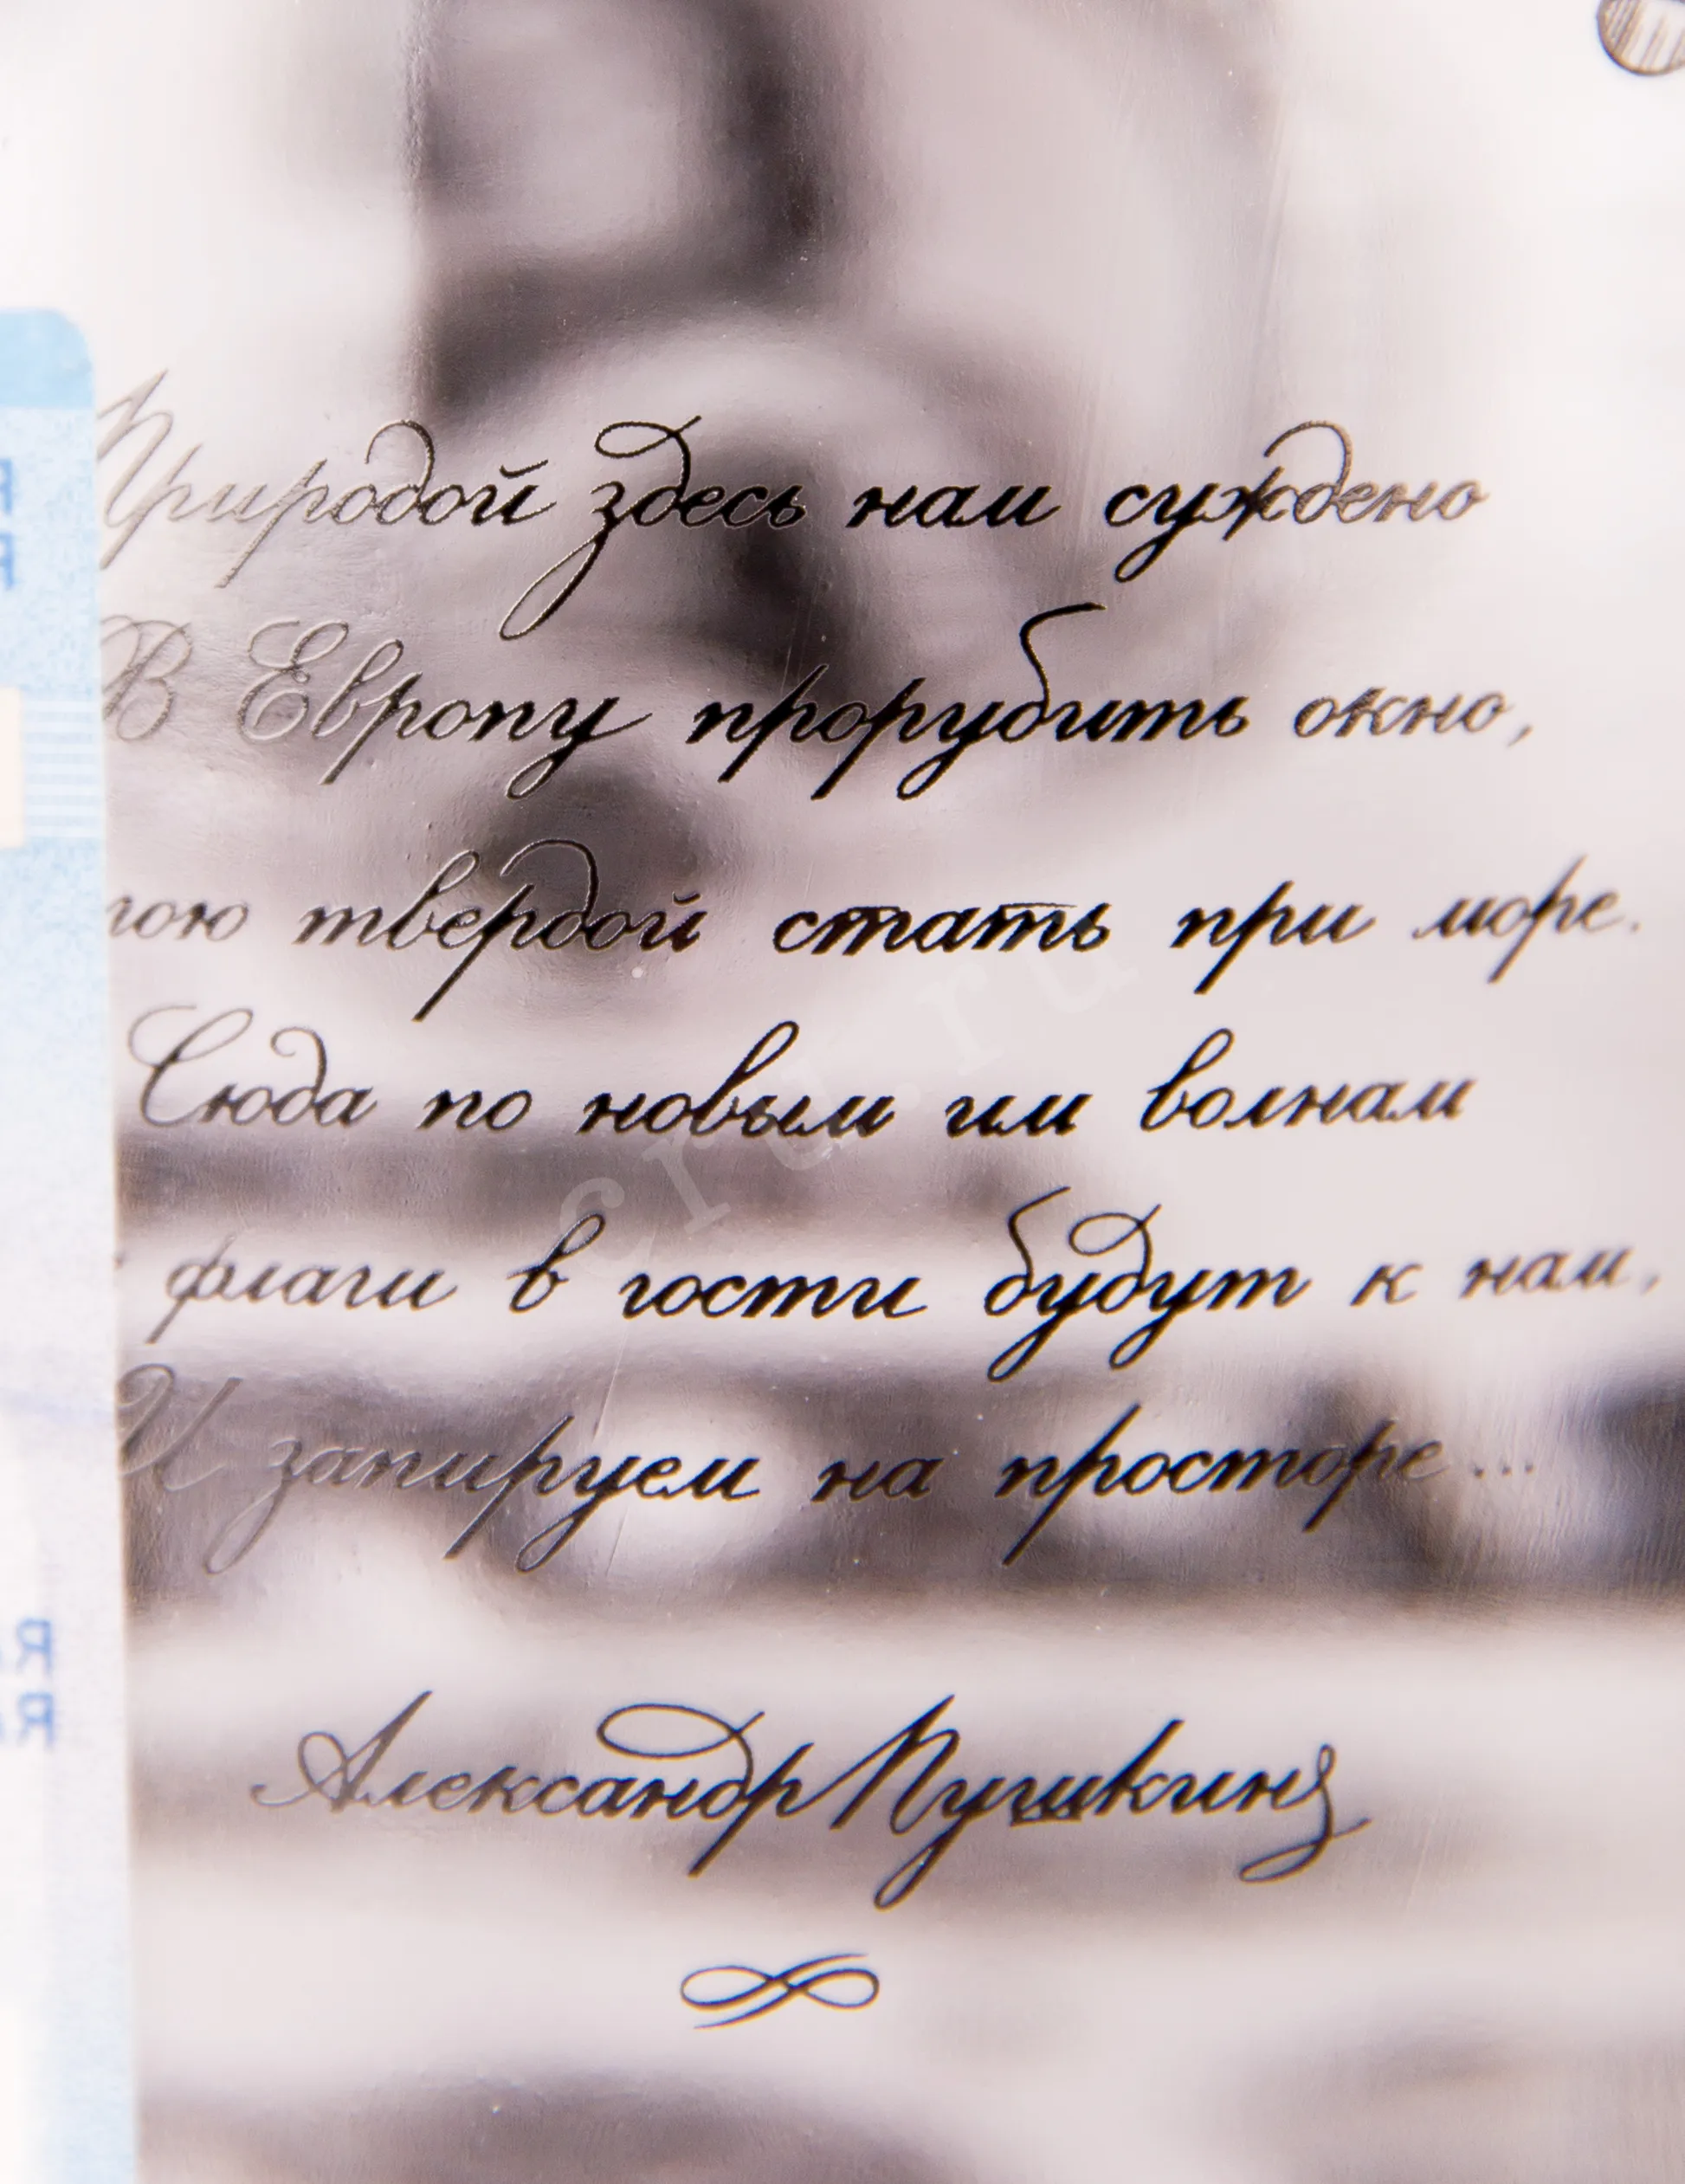 Природой здесь нам суждено
В Европу прорубить окно,
гою твердой стать при море.
Сюда по новым им волнам
флаги в гости будут к нам,
И запируем на просторе...
Александр Пушкинъ
cru.ru